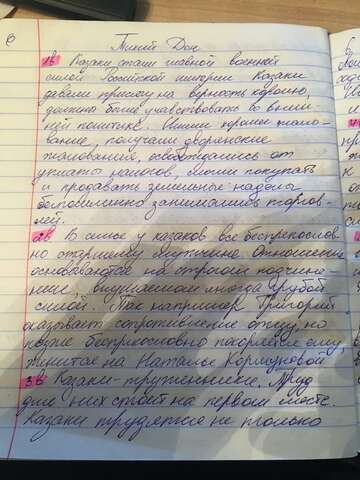 Тихий Дон
1в Казаки стали главной военной
силой Российской империи Казаки
давали присягу на верность королю,
должны были учавствовать во внеш
ней политике. Имели право жало-
вание, получали дворянские
жалования, освобождались от
уплаты налогов, могли покупать
и продавать земельные наделы
беспошленно занимались торгов-
лей.
2в В семье у казаков все беспрекослов-
но старшему мужчине. Отношения
основываются на строгом подчине-
нии, внушаемом иногда грубой
силой. Так например Григорий
оказывает сопротивление отцу, но
позже беспрекословно покоряется ему,
женится на Наталье Коршуновой
3в Казаки-труженники. Труд
для них стоит на первом месте.
Казаки трудятся не только